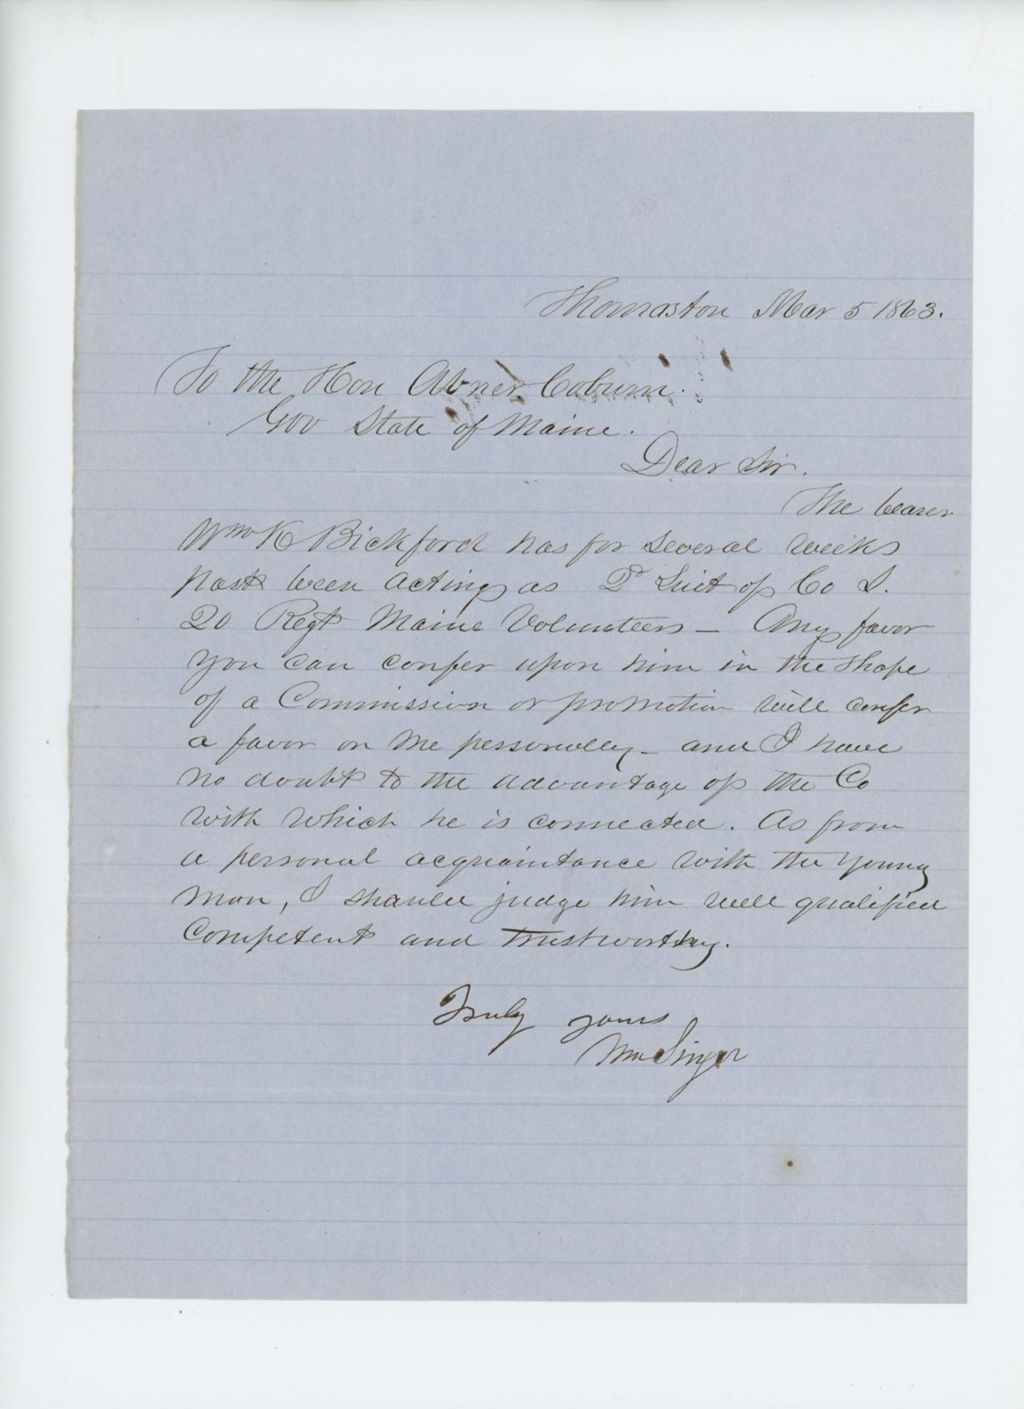 Thomaston Mar 5 1863.
To the Hon Abner Coburn.
Gov State of Maine.
Dear Sir.
The bearer
Wm K Bickford has for several weeks
past been acting as 2d Lieut of Co I.
20 Regt Maine Volunteers — Any favor
you can confer upon him in the shape
of a Commission or promotion will confer
a favor on me personally — and I have
no doubt to the advantage of the Co
with which he is connected. As from
a personal acquaintance with the young
man, I should judge him well qualified
Competent and trustworthy.
Truly yours
Wm Singer